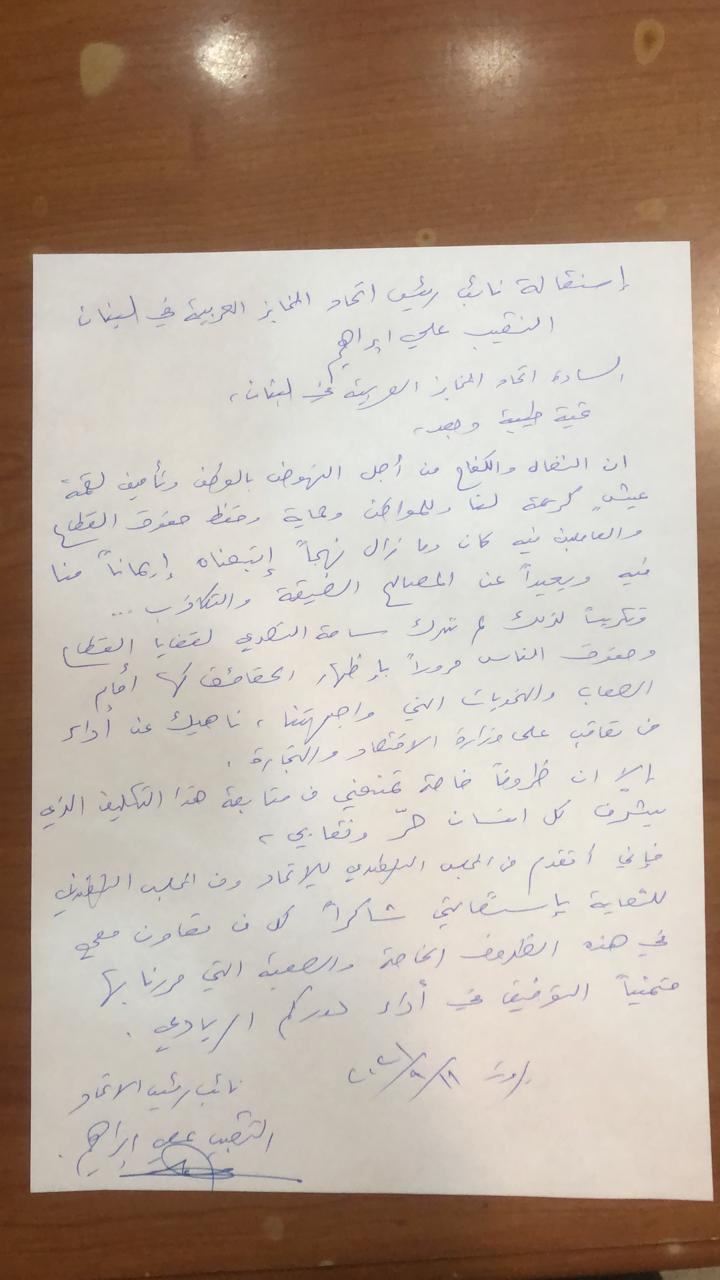 إستقالة نائب رئيس اتحاد المخابز العربية في لبنان
النقيب علي ابراهيم
السادة اتحاد المخابز العربية في لبنان،
تحية طيبة وبعد،
ان النضال والكفاح من أجل النهوض بالوطن وتأمين لقمة
عيشٍ كريمة لنا وللمواطن وحماية وحفظ حقوق القطاع
والعاملين فيه كان وما زال نهجاً إتبعناه إيماناً منا
فيه وبعيداً عن المصالح الضيقة والتكاذب ...
وتكريساً لذلك لم نترك ساحة التصدي لقضايا القطاع
وحقوق الناس مروراً بإظهار الحقائق كلها أمام
الصعاب والتحديات التي واجهتنا، ناهيك عن أداء
من تعاقب على وزارة الاقتصاد والتجارة.
إلا ان ظروفاً خاصة تمنعني من متابعة هذا التكليف الذي
يشرّف كل انسان حرّ ونقابي،
فإني أتقدم من المجلس التنفيذي للإتحاد ومن المجلس التنفيذي
للنقابة بإستقالتي شاكراً كل من تعاون معي
في هذه الظروف الخاصة والصعبة التي مررنا بها
متمنياً التوفيق في أداء دوركم الريادي.
بيروت
نائب رئيس الاتحاد
النقيب علي إبراهيم.